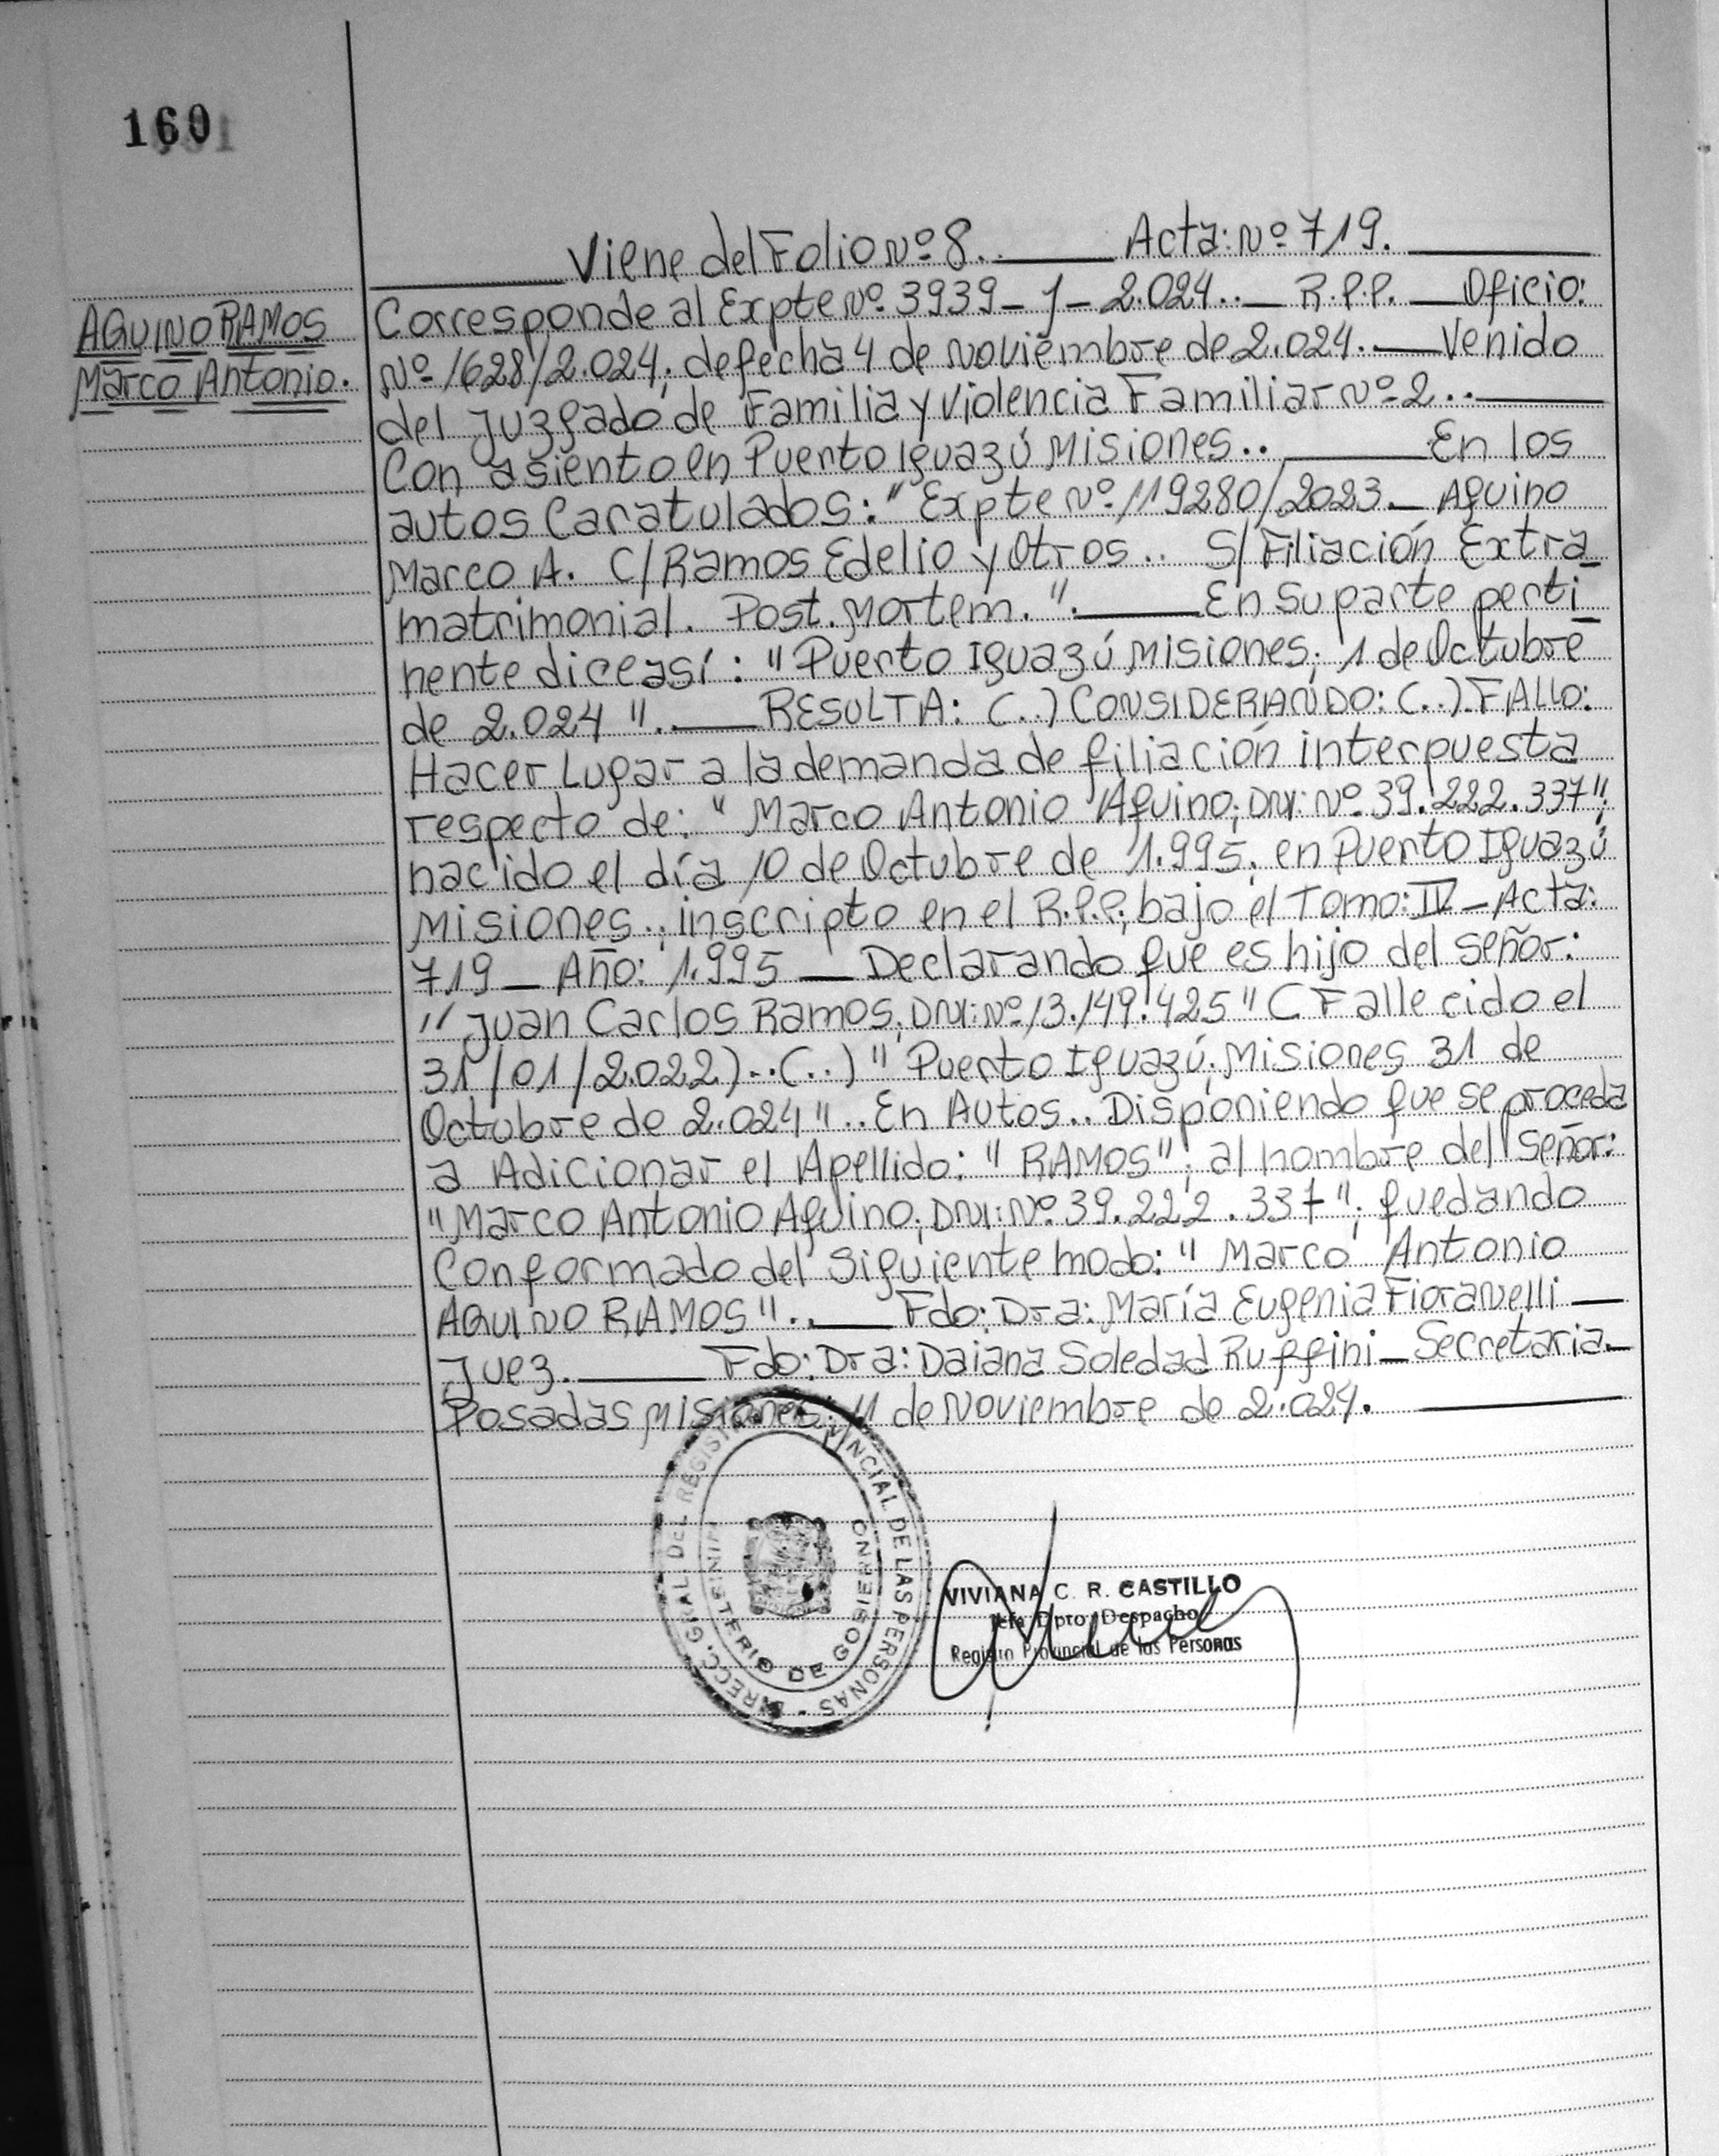 160
Viene del Folio Nº 8.. Acta: Nº 719.
AQUINO RAMOS
Marco Antonio.
Corresponde al Expte Nº 3939-J-2.024.. R.P.P. Oficio:
Nº 1628/2.024; de fecha 4 de Noviembre de 2.024.. Venido
del Juzgado de Familia y Violencia Familiar Nº 2..
Con asiento en Puerto Iguazú Misiones.. En los
autos Caratulados: "Expte Nº 119280/2023.- Aquino
Marco A. C/ Ramos Edelio y Otros.. S/ Filiación Extra
matrimonial. Post. Mortem.". En su parte perti
nente dice así: "Puerto Iguazú Misiones; 1 de Octubre
de 2.024". RESULTA: (..) CONSIDERANDO: (..) FALLO:
Hacer Lugar a la demanda de filiación interpuesta
respecto de: "Marco Antonio Aquino; DNI: Nº 39.222.337";
nacido el día 10 de Octubre de 1.995; en Puerto Iguazú
Misiones..; inscripto en el R.P.P; bajo el Tomo: IV - Acta:
719 - Año: 1.995 - Declarando que es hijo del señor:
"Juan Carlos Ramos; DNI: Nº 13.149.425" (Fallecido el
31/01/2.022)..(..) "Puerto Iguazú; Misiones 31 de
Octubre de 2.024".. En Autos.. Disponiendo que se proceda
a Adicionar el Apellido: "RAMOS"; al nombre del Señor:
"Marco Antonio Aquino; DNI: Nº 39.222.337"; quedando
Conformado del Siguiente modo: "Marco Antonio
AQUINO RAMOS".. Fdo: Dra: María Eugenia Fioravelli
Juez. Fdo: Dra: Daiana Soledad Ruffini - Secretaria.
Posadas Misiones; 11 de Noviembre de 2.024.
DIRECC. GRAL. DEL REGISTRO PROVINCIAL DE LAS PERSONAS
MINISTERIO DE GOBIERNO
VIVIANA C. R. CASTILLO
Jefa Dpto. Despacho
Registro Provincial de las Personas